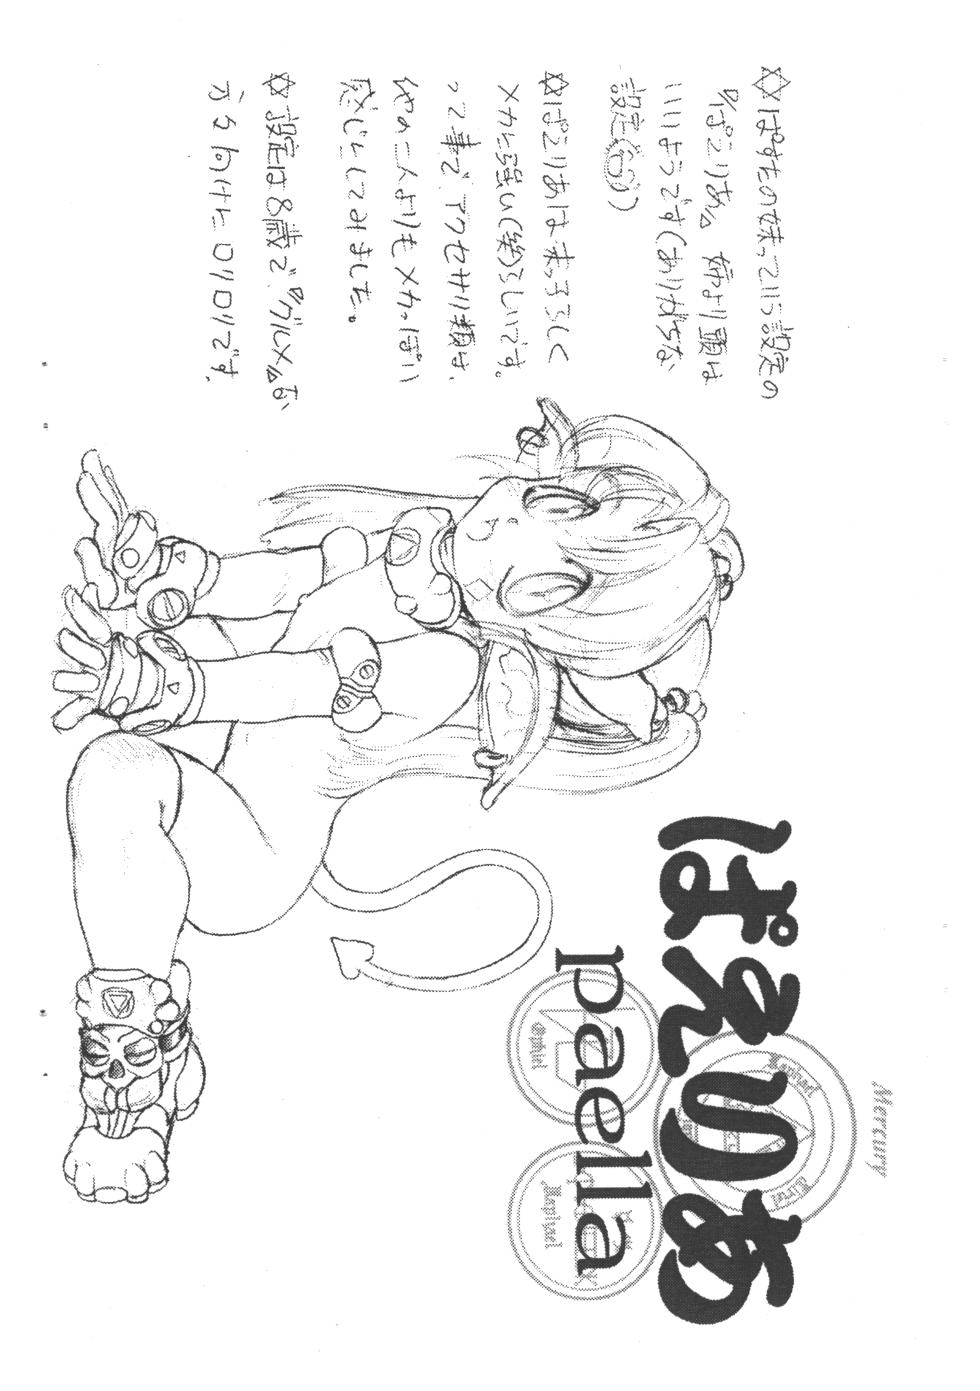 ✡ ぱすたの妹って言う設定の
"ぱえりあ" 姉より頭は
いいようです(ありがちな
設定(^^;))
✡ ぱえりあは
メカに強い(笑)らしいです。
って事で、アクセサリ類は、
他の二人よりもメカっぽい
感じにしてみました。
✡ 設定は8歳で
ロリロリです。
ぱえりあ
paella
Mercury
Raphael